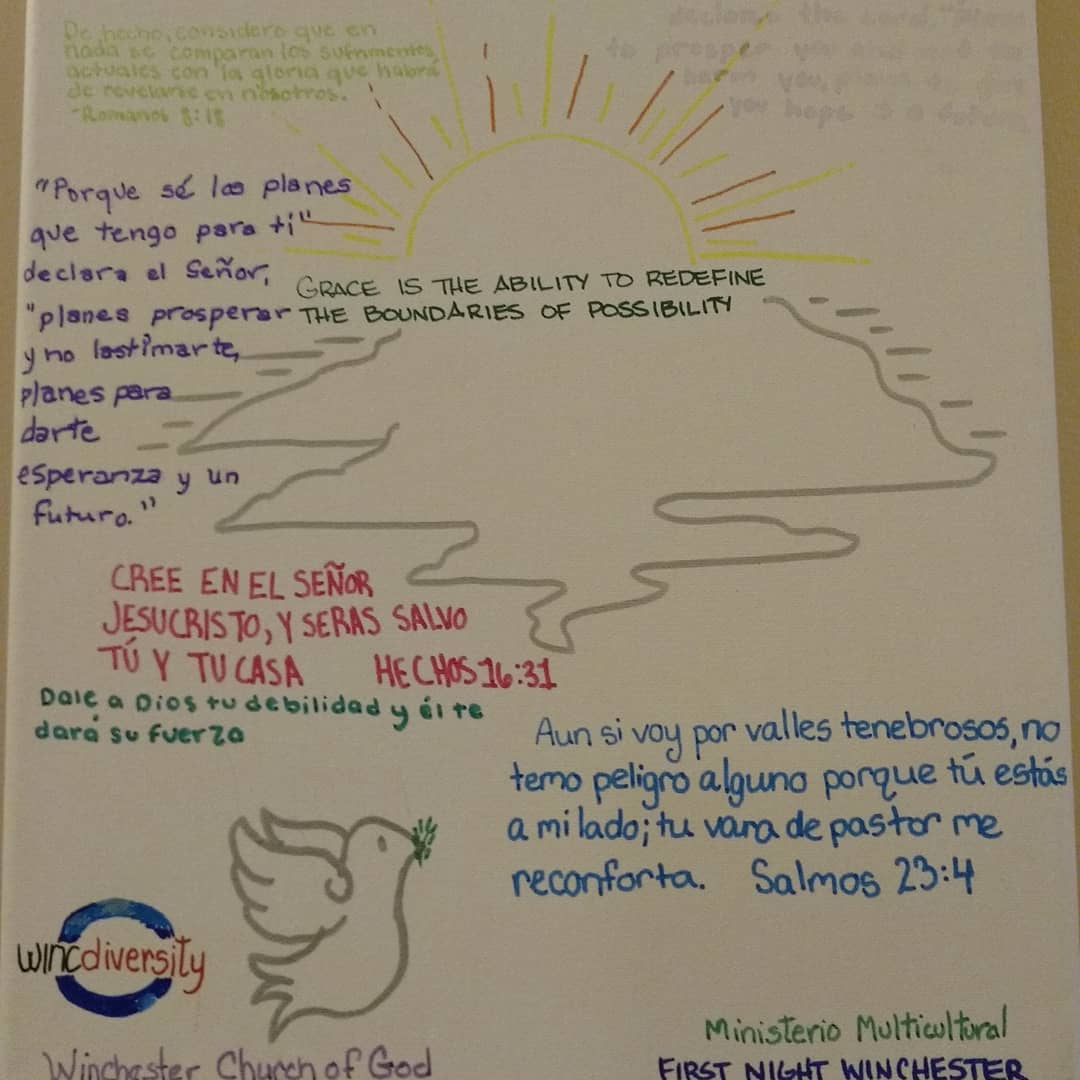 De hecho, considero que en
nada se comparan los sufrimentos
actuales con la gloria que habrá
de revelarse en nosotros.
-Romanos 8:18
declares the Lord, "plans
to prosper you and not to
harm you, plans to give
you hope & a future
"Porque sé las planes
que tengo para ti"
declara el Señor,
"planes prosperar
y no lastimarte,
planes para
darte
esperanza y un
futuro."
GRACE IS THE ABILITY TO REDEFINE
THE BOUNDARIES OF POSSIBILITY
CREE EN EL SEÑOR
JESUCRISTO, Y SERAS SALVO
TÚ Y TU CASA HECHOS 16:31
Dale a Dios tu debilidad y él te
dará su fuerza
Aun si voy por valles tenebrosos, no
temo peligro alguno porque tú estás
a mi lado; tu vara de pastor me
reconforta. Salmos 23:4
wincdiversity
Winchester Church of God
Ministerio Multicultural
FIRST NIGHT WINCHESTER